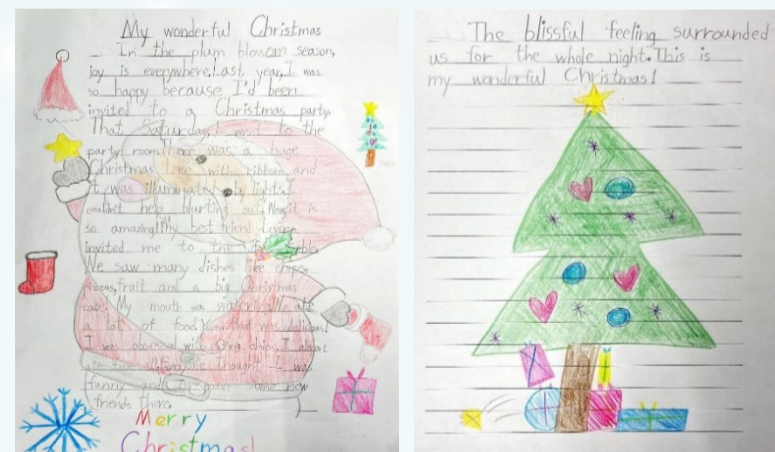 My wonderful Christmas
In the plum blossom season,
joy is everywhere. Last year, I was
so happy because I'd been
invited to a Christmas party.
That Saturday, I went to the
party room. There was a huge
Christmas tree with ribbon and
it was illuminated lights. I
couldn't help blurting out "Wow, it is
so amazing! My best friend
invited me to the
We saw many dishes like chips,
fruit and a big Christmas
cake. My mouth was watering. I ate
a lot of food. Yum, that was delicious!
I was obsessed with chips. I almost
ate all. Everyone thought I was
funny and I some new
friends there.
Merry
Christmas!
The blissful feeling surrounded
us for the whole night. This is
my wonderful Christmas!